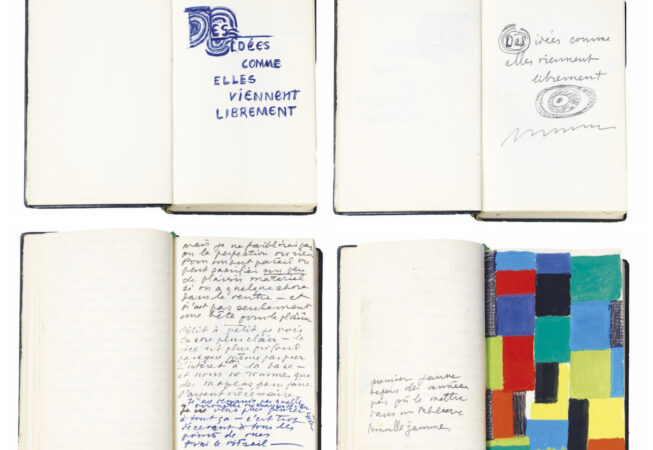 DES
IDÉES
COMME
ELLES
VIENNENT
LIBREMENT
Des idées comme
elles viennent
librement
mais je ne faiblirai pas
ou la perfection ou rien
Pour un but pareil on
peut sacrifier un peu
de plaisir matériel
si on a quelque chose
dans le ventre - et
n'est pas seulement
une bête pour le plaisir
Petit à petit je vois
encore plus clair - le
vice est plus profond
parce que même pas par
l'intérêt à la base -
et nous ne sommes que
des moyens pour faire
l'argent nécessaire
je ne veux plus
à tout ça - c'est trop
à tous les
points de vues
premier jaune
depuis des années
pas pû le mettre
dans un tableau
nouvelle gamme